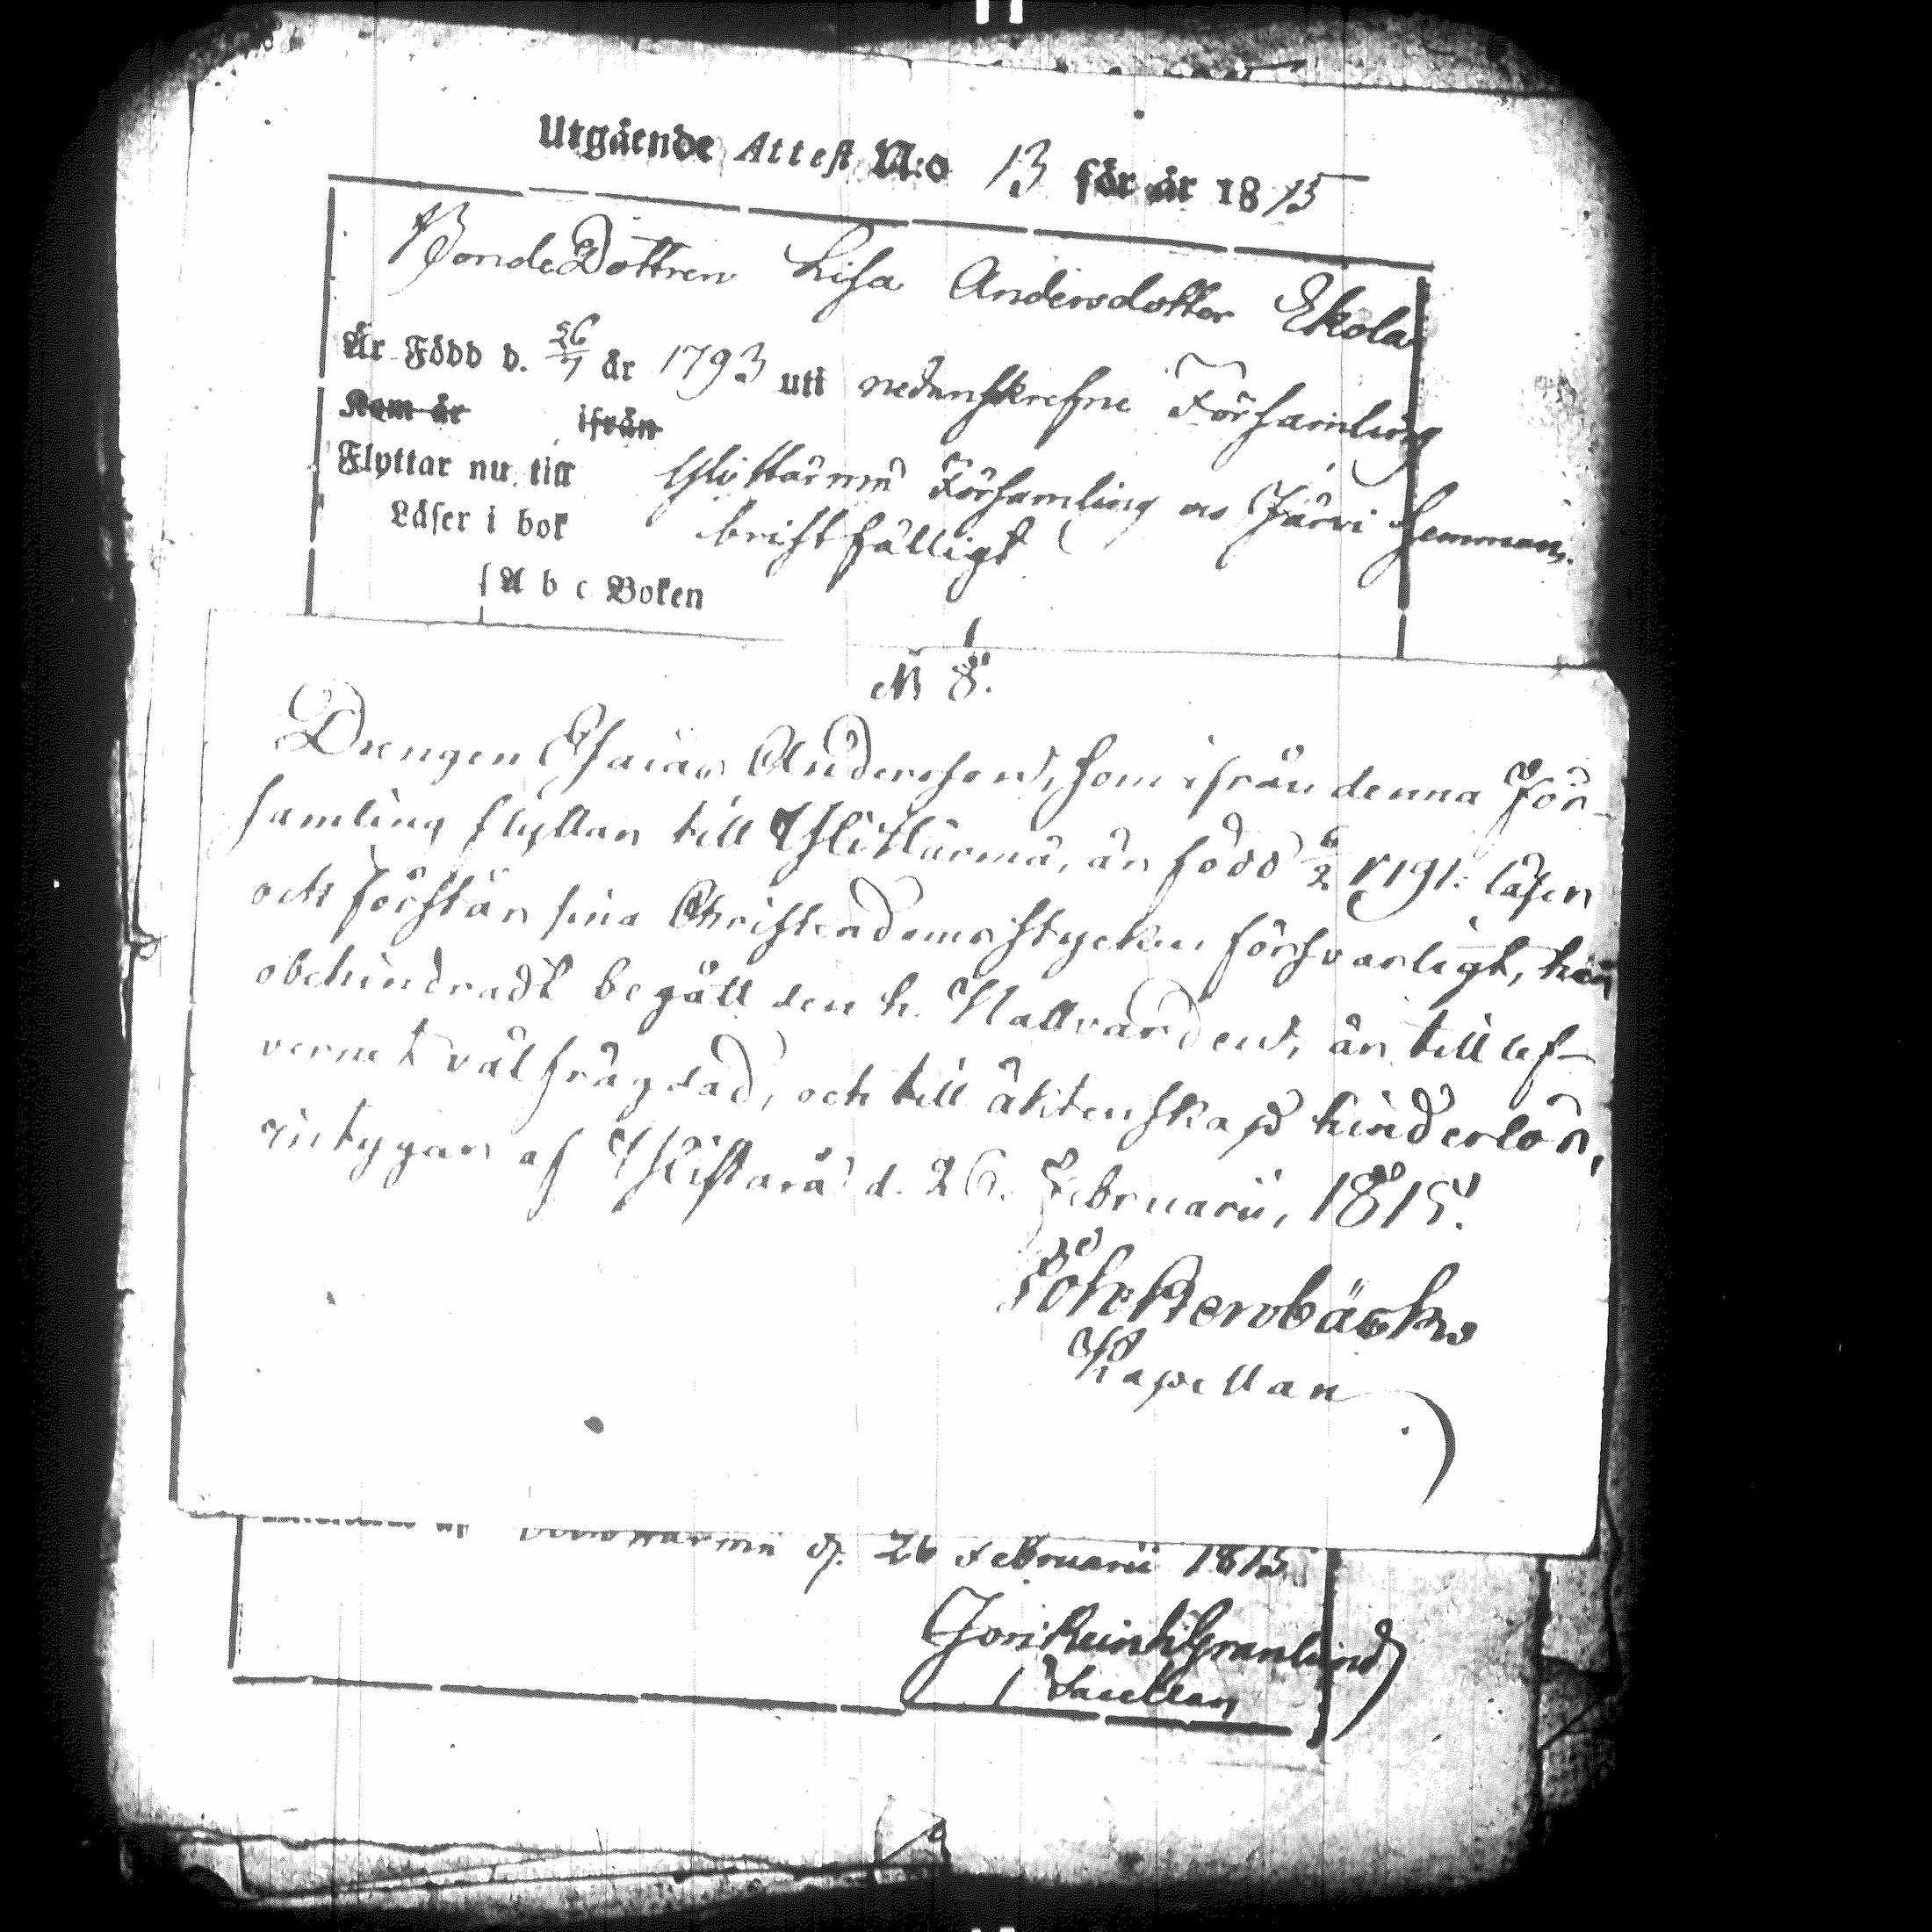 Utgående Attest N:o 13 för år 1815
BondeDottren Lisa Andersdotter Ekola
Är Född d. 26/7 år 1793 uti nedanskrefne Församling
Kom år ifrån
Flyttar nu till Ylistarmu Församling os Järvi hemman.
Läser i bok bristfälligt
A b c Boken
N 8.
Drengen Esaias Andersson, som ifrån denna För-
samling flyttar till Ylihärmä, är född 6/2 1791: läser
och förstår sina Christendomsstycken försvarligt, har
obehindradt begått den h. Nattvarden, är till lef-
vernet välfrägdad, och till äktenskap hinderlös,
intygar af Ylistaro d. 26. Februarii, 1815.
Joh: Rervbäck
Kapellan
d. 26 Februarii 1815
Granlund
Sacellan